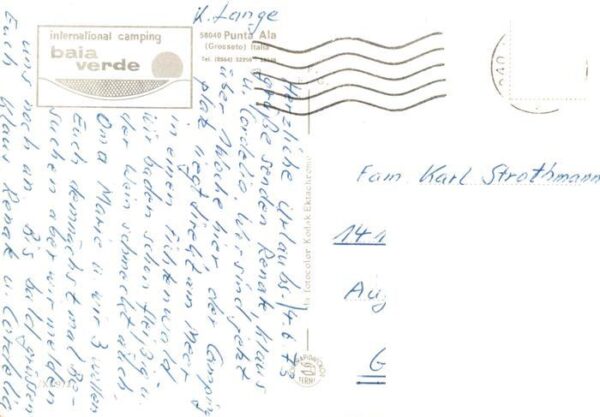 K. Lange
international camping
baia
verde
58040 Punta Ala
(Grosseto) Italia
Herzliche Urlaubs- 14.6.73
grüße senden Renate, Klaus
u. Cordelia. Wir sind jetzt
über Woche hier der Camping
platz liegt direkt am Meer
in einen Fichtenwald
wir baden schon fleißig u.
der Wein schmeckt auch.
Oma Marie u. wir 3 wollen
Euch demnächst mal Be-
suchen aber wir melden
uns noch an. Bis bald grüssen
Euch Klaus Renate u. Cordelia
fotocolor Kodak Ektachrome
TERNI
Fam Karl Strothmann
141
Aug
G